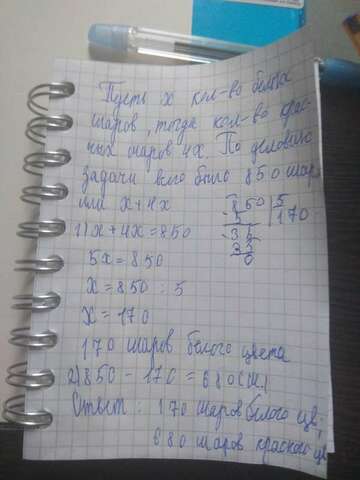 Пусть x кол-во белых
шаров, тогда кол-во крас-
ных шаров 4x. По условию
задачи всего было 850 шар
или x+4x
1) x+4x=850
850 5
5 170
35
35
0
5x=850
x=850 : 5
x=170
170 шаров белого цвета
2) 850 - 170 = 680 (ш.)
Ответ: 170 шаров белого цв,
680 шаров красного цв